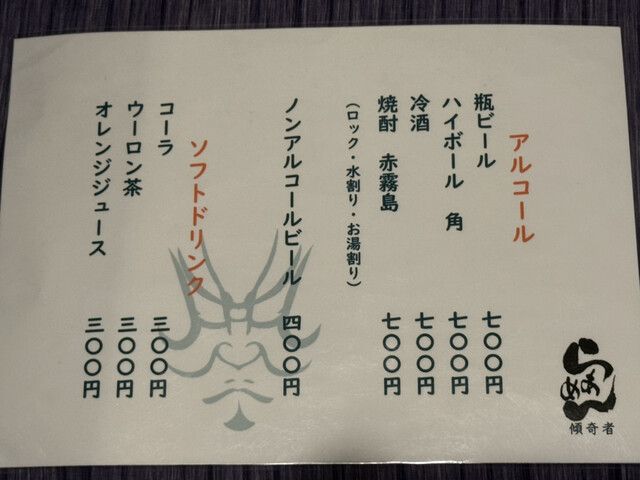 アルコール
瓶ビール 七〇〇円
ハイボール 角 七〇〇円
冷酒 七〇〇円
焼酎 赤霧島 七〇〇円
（ロック・水割り・お湯割り）
ノンアルコールビール 四〇〇円
ソフトドリンク
コーラ 三〇〇円
ウーロン茶 三〇〇円
オレンジジュース 三〇〇円
らぁめん
傾奇者